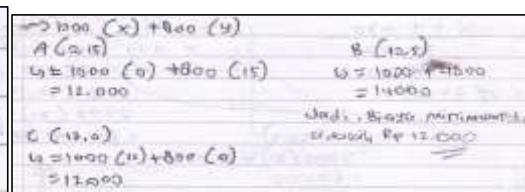 → 1000 (x) + 800 (y)
A (0,15)
w = 1000 (0) + 800 (15)
= 12.000
B (10,5)
w = 1000 + 4000
= 14000
Jadi, Biaya minimum
Rp 12.000
C (12,0)
w = 1000 (12) + 800 (0)
= 12000